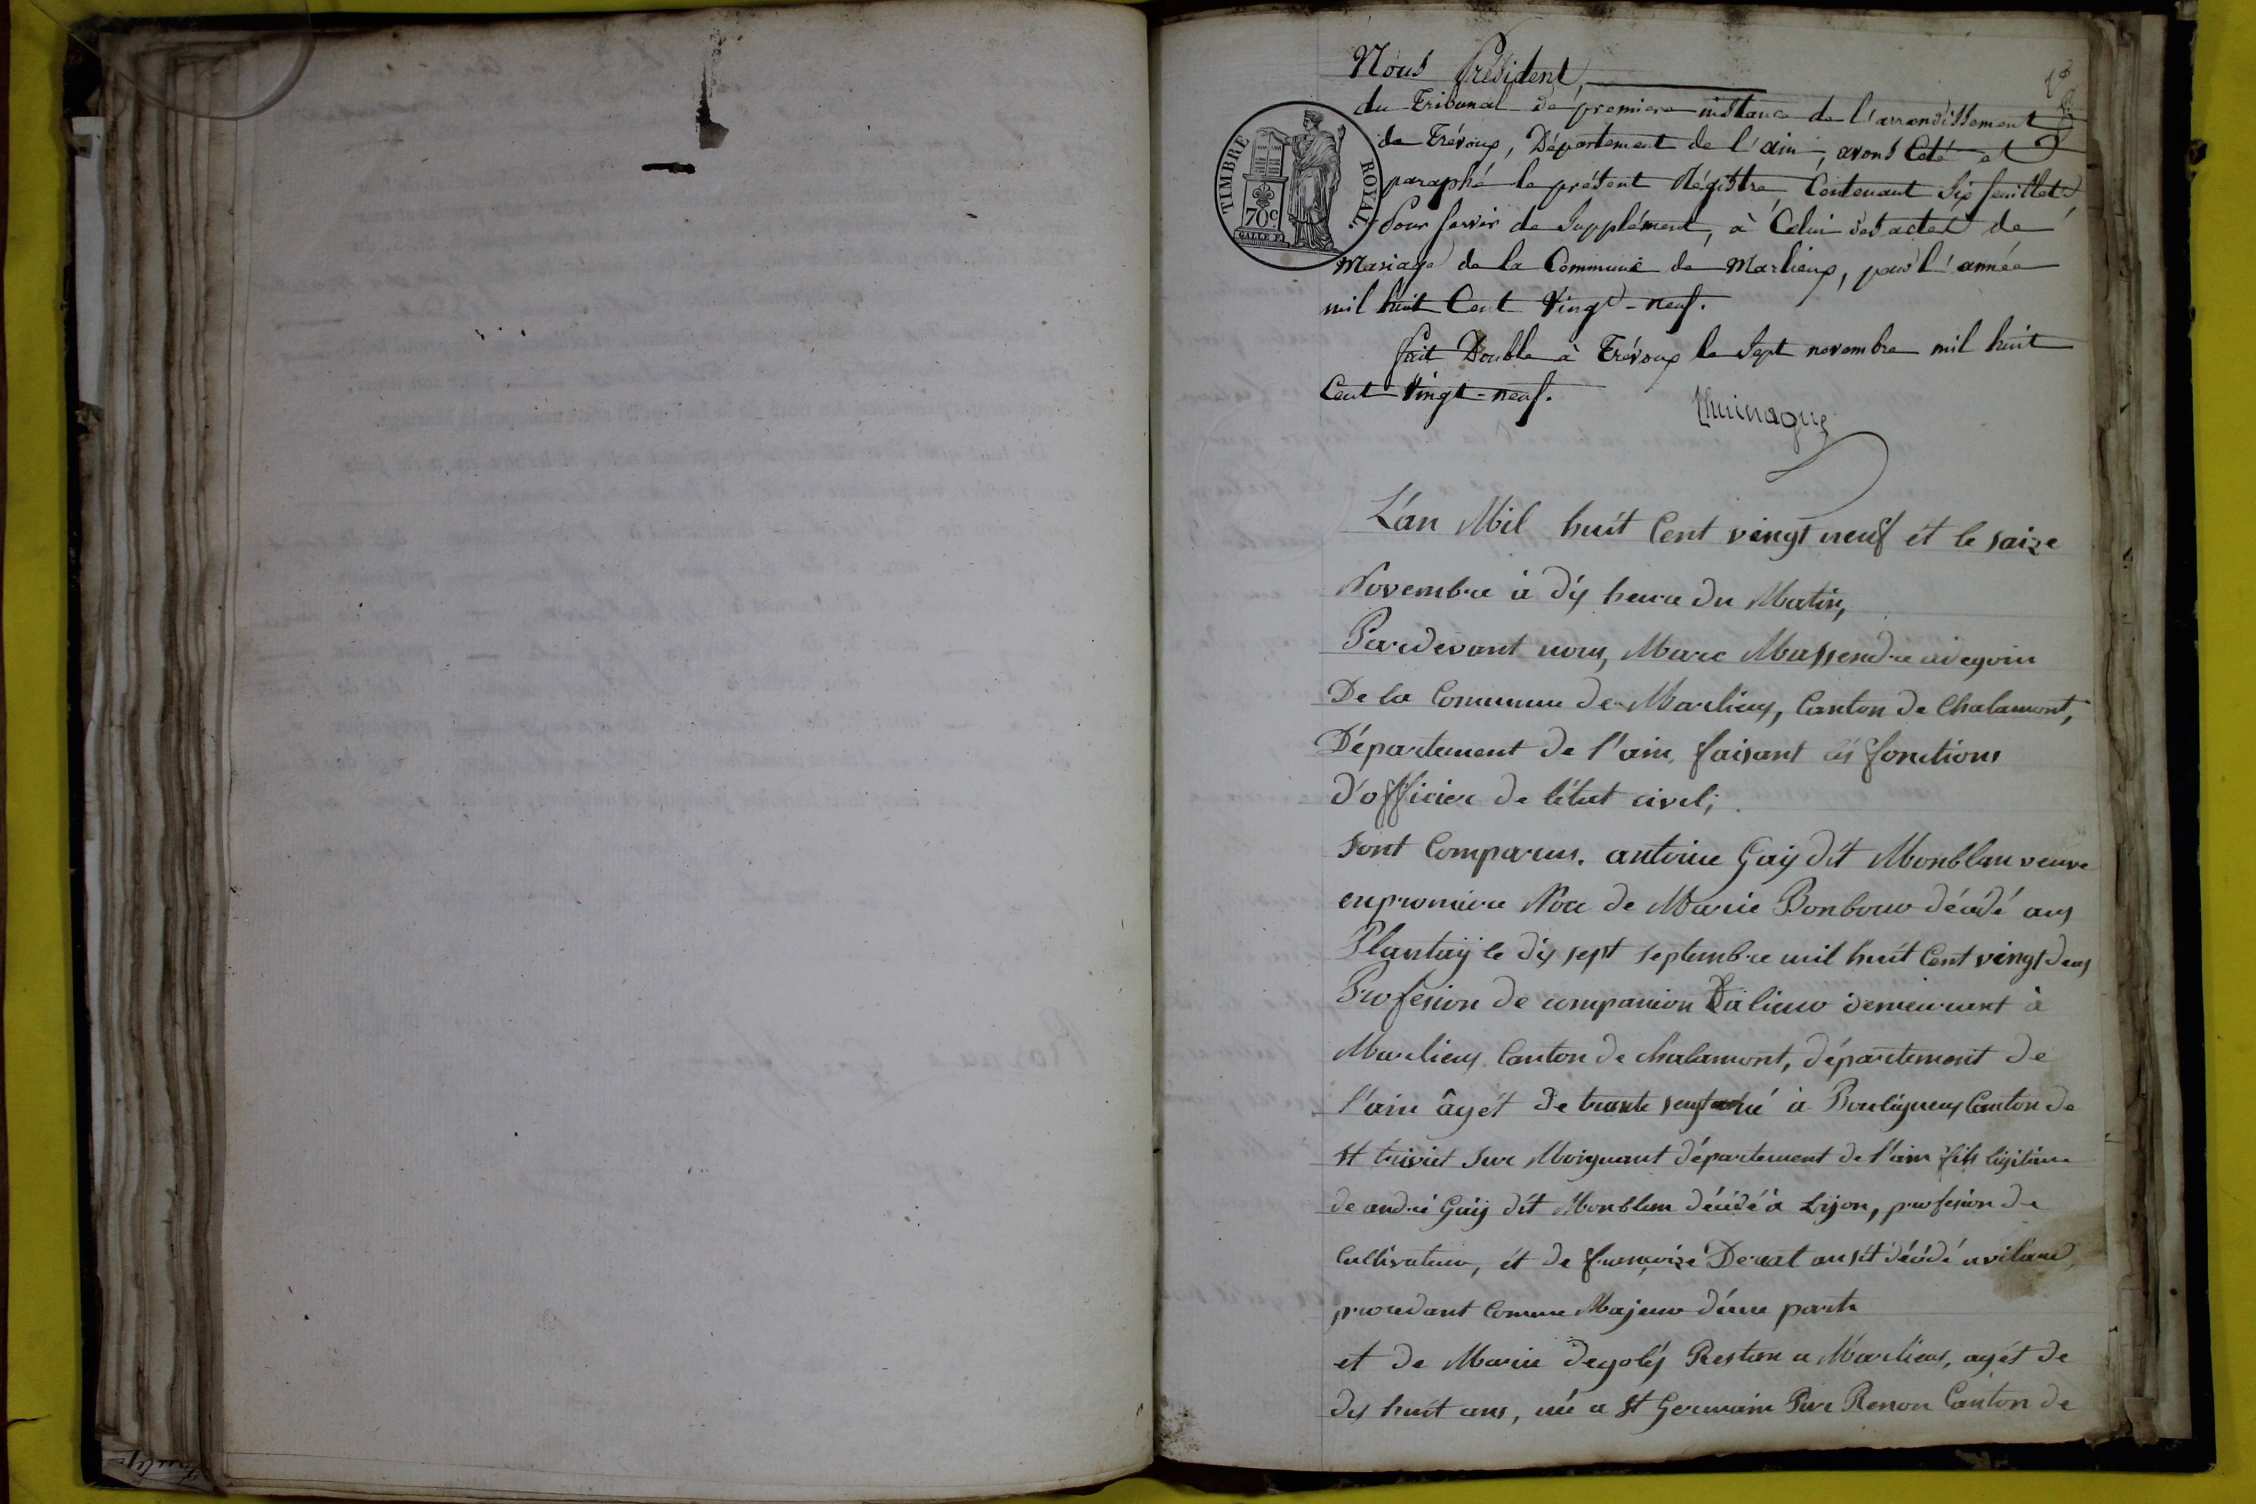 1er
Nous Président,
du Tribunal de premiere instance de l'arrondissement
de Trévoux, Département de l'ain, avons Coté et
paraphé le présent Régistre Contenant Six feuillets
Pour servir de Supplément, à Celui des actes de
Mariage de la Commune de Marlieux, pour l'année
mil huit Cent Vingt-neuf.
fait Double à Trévoux le Sept novembre mil huit
Cent Vingt-neuf.
TIMBRE ROYAL.
70c
GALLE F.
L'an Mil huit Cent vingt neuf ét le saize
Novembre à dix heure du Matin,
Pardevant nous, Marc Massendre adegoin
De la Commune de Marlieux, Canton de Chalamont,
Département de l'ain, faisant lés fonctions
d'officier de l'état civil;
sont Comparus. antoine Gaÿ dit Monblan veuve
enpromiere Noce de Marie Bonbour décédé aux
Plantaÿ le dix sept septembre mil huit Cent vingt deux
Profesion de companion demeurent à
Marlieux Canton de chalamont, département de
l'ain âgét de trante sept né à Bouligneux Canton de
st triviét sur Moignant département de l'ain fils ligitime
de andré Gaÿ dit Monblan décédé à Lÿon, profesion de
Cultivateur, ét de françoize Decrat ausét décédé avilard,
procedant Comme Majeur d'une parte
et de Marie degoléÿ Restan a Marlieux, agét de
dix huit ans, né a St Germain Sur Renon Canton de